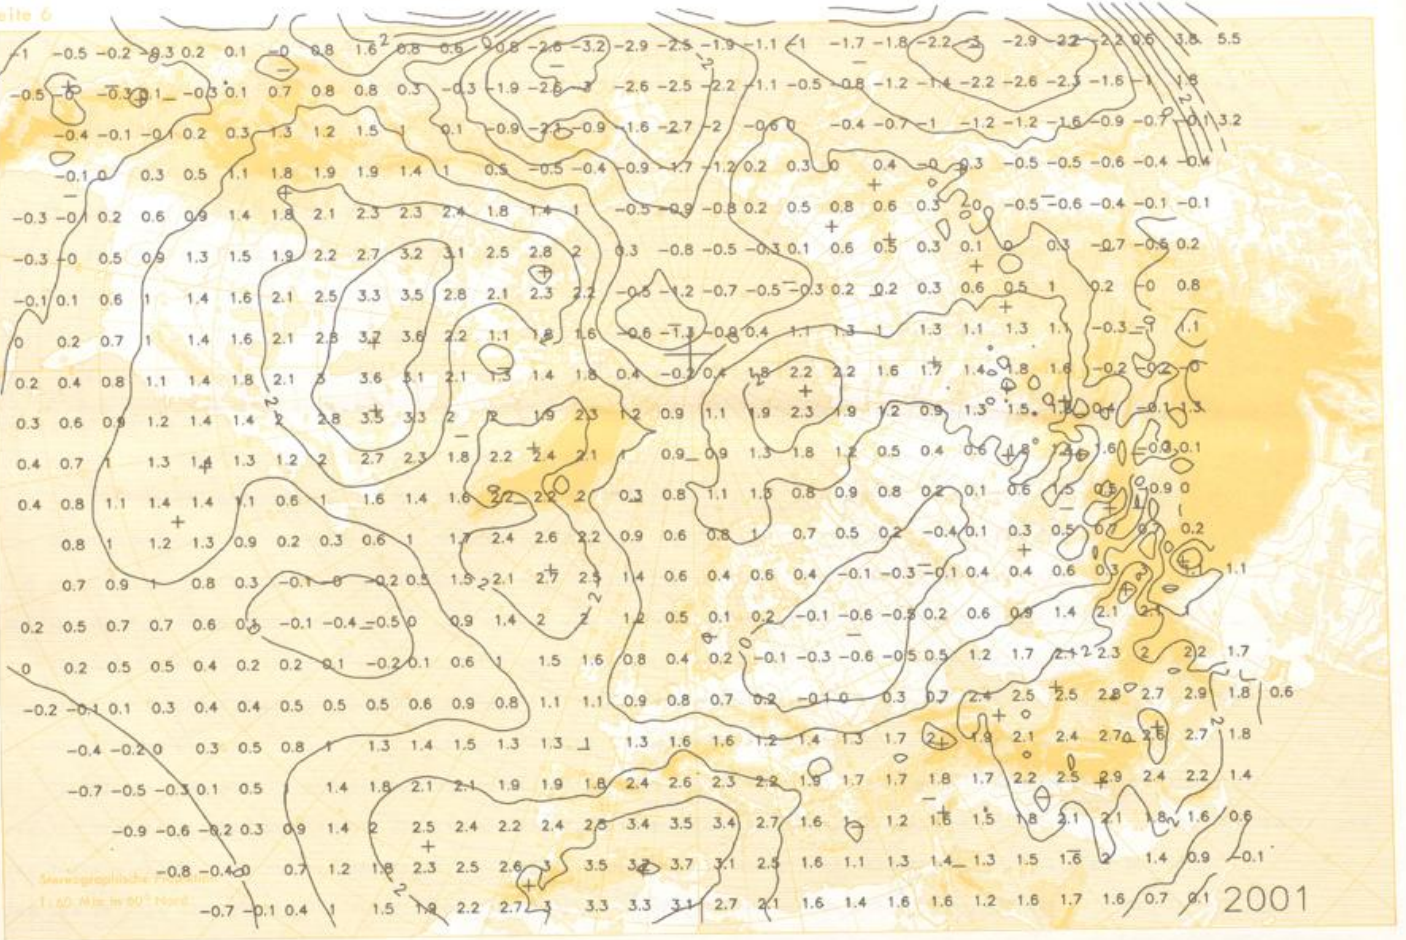 eite 6
-1 -0.5 -0.2 -0.3 0.2 0.1 -0 0.8 1.6 0.8 0.6 -0.8 -2.6 -3.2 -2.9 -2.5 -1.9 -1.1 -1 -1.7 -1.8 -2.2 -3 -2.9 -2.2 -2.2 0.6 3.8 5.5
-0.5 -0 -0.3 0.1 -0.3 0.1 0.7 0.8 0.8 0.3 -0.3 -1.9 -2.6 -3 -2.6 -2.5 -2.2 -1.1 -0.5 -0.8 -1.2 -1.4 -2.2 -2.6 -2.3 -1.6 -1 1.8
-0.4 -0.1 -0.1 0.2 0.3 1.3 1.2 1.5 1 0.1 -0.9 -2.1 -0.9 -1.6 -2.7 -2 -0.6 0 -0.4 -0.7 -1 -1.2 -1.2 -1.6 -0.9 -0.7 -0.1 3.2
-0.1 0 0.3 0.5 1.1 1.8 1.9 1.9 1.4 1 0.5 -0.5 -0.4 -0.9 -1.7 -1.2 0.2 0.3 0 0.4 -0 0.3 -0.5 -0.5 -0.6 -0.4 -0.4
-0.3 -0.1 0.2 0.6 0.9 1.4 1.8 2.1 2.3 2.3 2.4 1.8 1.4 1 -0.5 -0.9 -0.8 0.2 0.5 0.8 0.6 0.3 -0.5 -0.6 -0.4 -0.1 -0.1
-0.3 -0 0.5 0.9 1.3 1.5 1.9 2.2 2.7 3.2 3.1 2.5 2.8 2 0.3 -0.8 -0.5 -0.3 0.1 0.6 0.5 0.3 0.1 0 0.3 -0.7 -0.6 0.2
-0.1 0.1 0.6 1 1.4 1.6 2.1 2.5 3.3 3.5 2.8 2.1 2.3 2.2 -0.5 -1.2 -0.7 -0.5 -0.3 0.2 0.2 0.3 0.6 0.5 1 0.2 -0 0.8
0 0.2 0.7 1 1.4 1.6 2.1 2.8 3.7 3.6 2.2 1.1 1.8 1.6 -0.6 -1.3 -0.8 0.4 1.1 1.3 1 1.3 1.1 1.3 1.1 -0.3 -1 1.1
0.2 0.4 0.8 1.1 1.4 1.8 2.1 3 3.6 3.1 2.1 1.3 1.4 1.8 0.4 -0.2 0.4 1.8 2.2 2.2 1.6 1.7 1.4 1.8 1.6 -0.2 -0.2 -0
0.3 0.6 0.9 1.2 1.4 1.4 2 2.8 3.5 3.3 2 2 1.9 2.3 1.2 0.9 1.1 1.9 2.3 1.9 1.2 0.9 1.3 1.5 0.4 -0.1 1.3
0.4 0.7 1 1.3 1.4 1.3 1.2 2 2.7 2.3 1.8 2.2 2.4 2.1 1 0.9 0.9 1.3 1.8 1.2 0.5 0.4 0.6 1.8 1.6 -0.3 0.1
0.4 0.8 1.1 1.4 1.4 1.1 0.6 1 1.6 1.4 1.6 2.2 2.2 2 0.3 0.8 1.1 1.3 0.8 0.9 0.8 0.2 0.1 0.6 1.5 0.5 -0.9 0
0.8 1 1.2 1.3 0.9 0.2 0.3 0.6 1 1.7 2.4 2.6 2.2 0.9 0.6 0.8 1 0.7 0.5 0.2 -0.4 0.1 0.3 0.5 0.7 0.7 0.2
0.7 0.9 1 0.8 0.3 -0.1 -0 -0.2 0.5 1.5 2.1 2.7 2.5 1.4 0.6 0.4 0.6 0.4 -0.1 -0.3 -0.1 0.4 0.4 0.6 0.3 1.1
0.2 0.5 0.7 0.7 0.6 0.1 -0.1 -0.4 -0.5 0 0.9 1.4 2 2 1.2 0.5 0.1 0.2 -0.1 -0.6 -0.5 0.2 0.6 0.9 1.4 2.1 2.1 1
0 0.2 0.5 0.5 0.4 0.2 0.2 0.1 -0.2 0.1 0.6 1 1.5 1.6 0.8 0.4 0.2 -0.1 -0.3 -0.6 -0.5 0.5 1.2 1.7 2.1 2.3 2 2.2 1.7
-0.2 -0.1 0.1 0.3 0.4 0.4 0.5 0.5 0.5 0.6 0.9 0.8 1.1 1.1 0.9 0.8 0.7 0.2 -0.1 0 0.3 0.7 2.4 2.5 2.5 2.8 2.7 2.9 1.8 0.6
-0.4 -0.2 0 0.3 0.5 0.8 1 1.3 1.4 1.5 1.3 1.3 1 1.3 1.6 1.6 1.2 1.4 1.3 1.7 2 1.9 2.1 2.4 2.7 2.6 2.7 1.8
-0.7 -0.5 -0.3 0.1 0.5 1 1.4 1.8 2.1 2.1 1.9 1.9 1.8 2.4 2.6 2.3 2.2 1.9 1.7 1.7 1.8 1.7 2.2 2.5 2.9 2.4 2.2 1.4
-0.9 -0.6 -0.2 0.3 0.9 1.4 2 2.5 2.4 2.2 2.4 2.8 3.4 3.5 3.4 2.7 1.6 1 1.2 1.6 1.5 1.8 2.1 2.1 1.8 1.6 0.6
-0.8 -0.4 0 0.7 1.2 1.8 2.3 2.5 2.6 3 3.5 3.2 3.7 3.1 2.5 1.6 1.1 1.3 1.4 1.3 1.5 1.6 2 1.4 0.9 -0.1
Stereographische
1:60 Mio in 60° Nord
-0.7 -0.1 0.4 1 1.5 1.9 2.2 2.7 3 3.3 3.3 3.1 2.7 2.1 1.6 1.4 1.6 1.6 1.2 1.6 1.7 1.6 0.7 0.1 2001